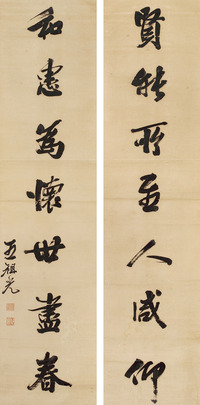 賢能所至人咸仰
和惠為懷世盡春
王祖光